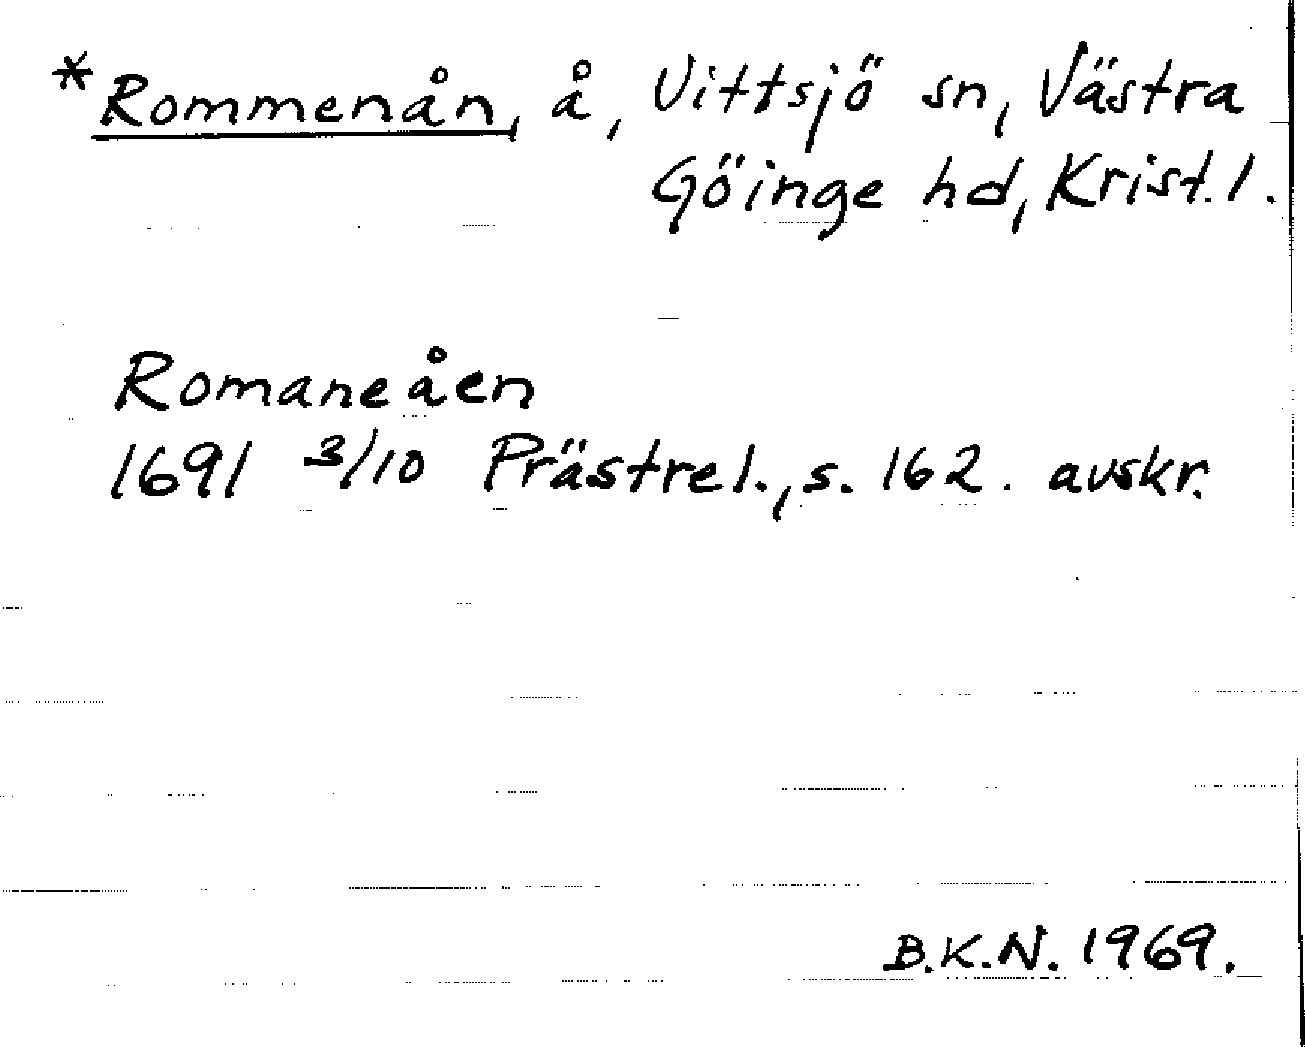 *Rommenån, å, Vittsjö sn, Västra
Göinge hd, Krist. l.
Romaneåen
1691 3/10 Prästrel., s. 162. avskr.
B.K.N. 1969.